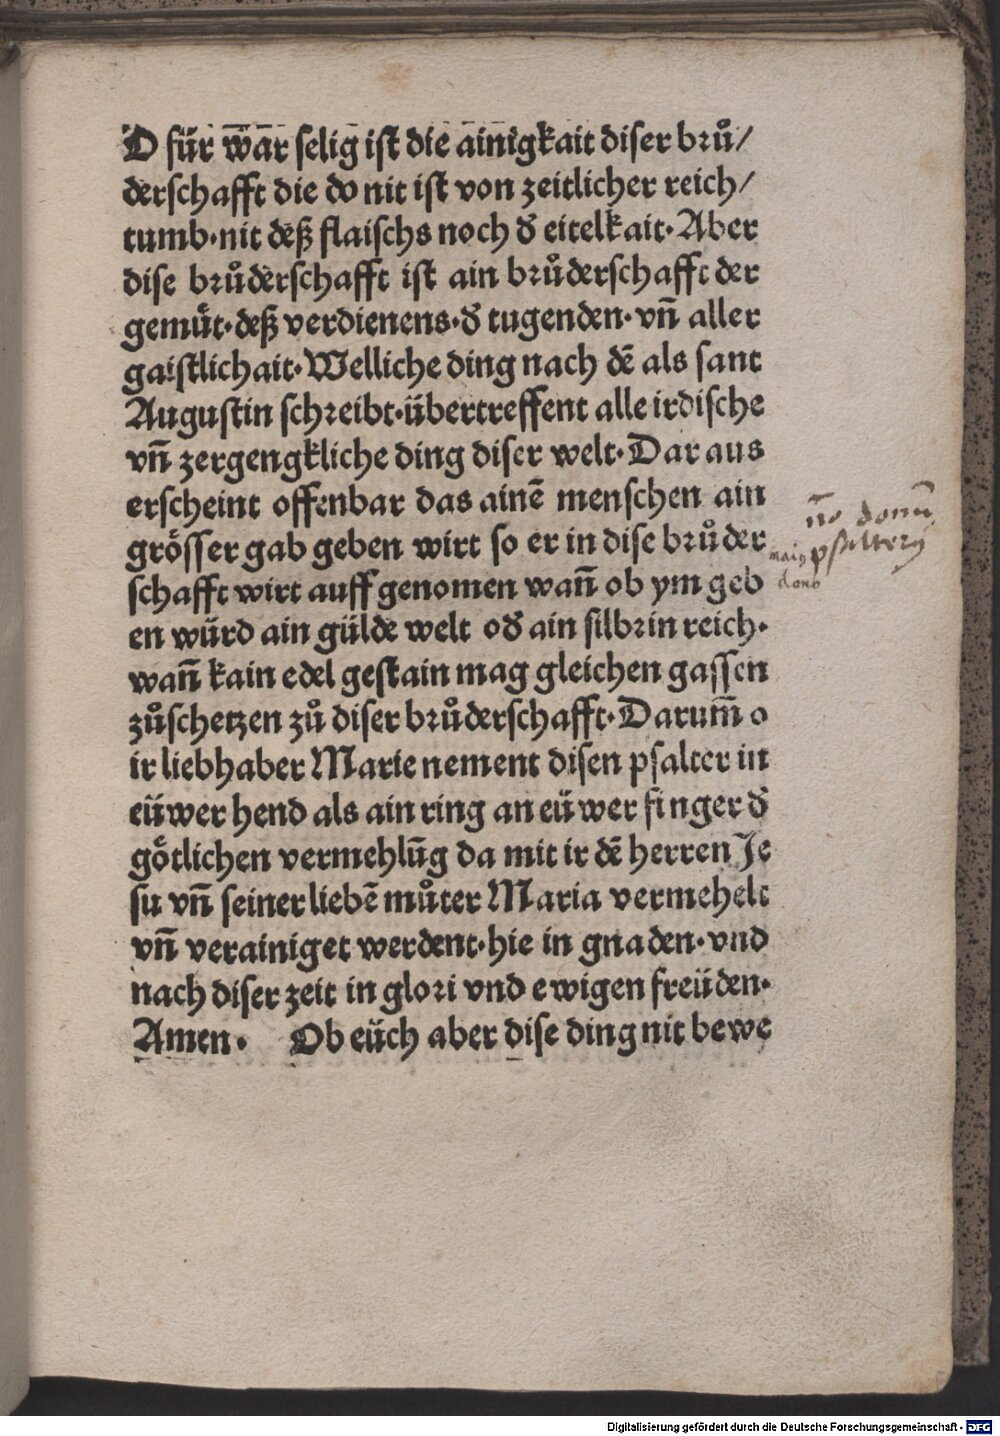 O für war selig ist die ainigkait diser brů/
derschafft die do nit ist von zeitlicher reich/
tumb·nit deß flaischs noch d̕ eitelkait·Aber
dise brůderschafft ist ain brůderschafft der
gemüt·deß verdienens·d̕ tugenden·vn̄ aller
gaistlichait·Welliche ding nach dē als sant
Augustin schreibt·übertreffent alle irdische
vn̄ zergengkliche ding diser welt·Dar aus
erscheint offenbar das ainē menschen ain
grösser gab geben wirt so er in dise brůder
schafft wirt auff genomen wan̄ ob ym geb
en würd ain gülde welt od̕ ain silbrin reich·
wan̄ kain edel gestain mag gleichen gassen
zůschetzen zů diser brůderschafft·Darum̄ o
ir liebhaber Marie nement disen psalter in
eüwer hend als ain ring an eüwer finger d̕
götlichen vermehlūg da mit ir dē herren Je
su vn̄ seiner liebē můter Maria vermehelt
vn̄ verainiget werdent·hie in gnaden·vnd
nach diser zeit in glori vnd ewigen freüden·
Amen· Ob eüch aber dise ding nit bewe
donū
psalterij
Digitalisierung gefördert durch die Deutsche Forschungsgemeinschaft - DFG